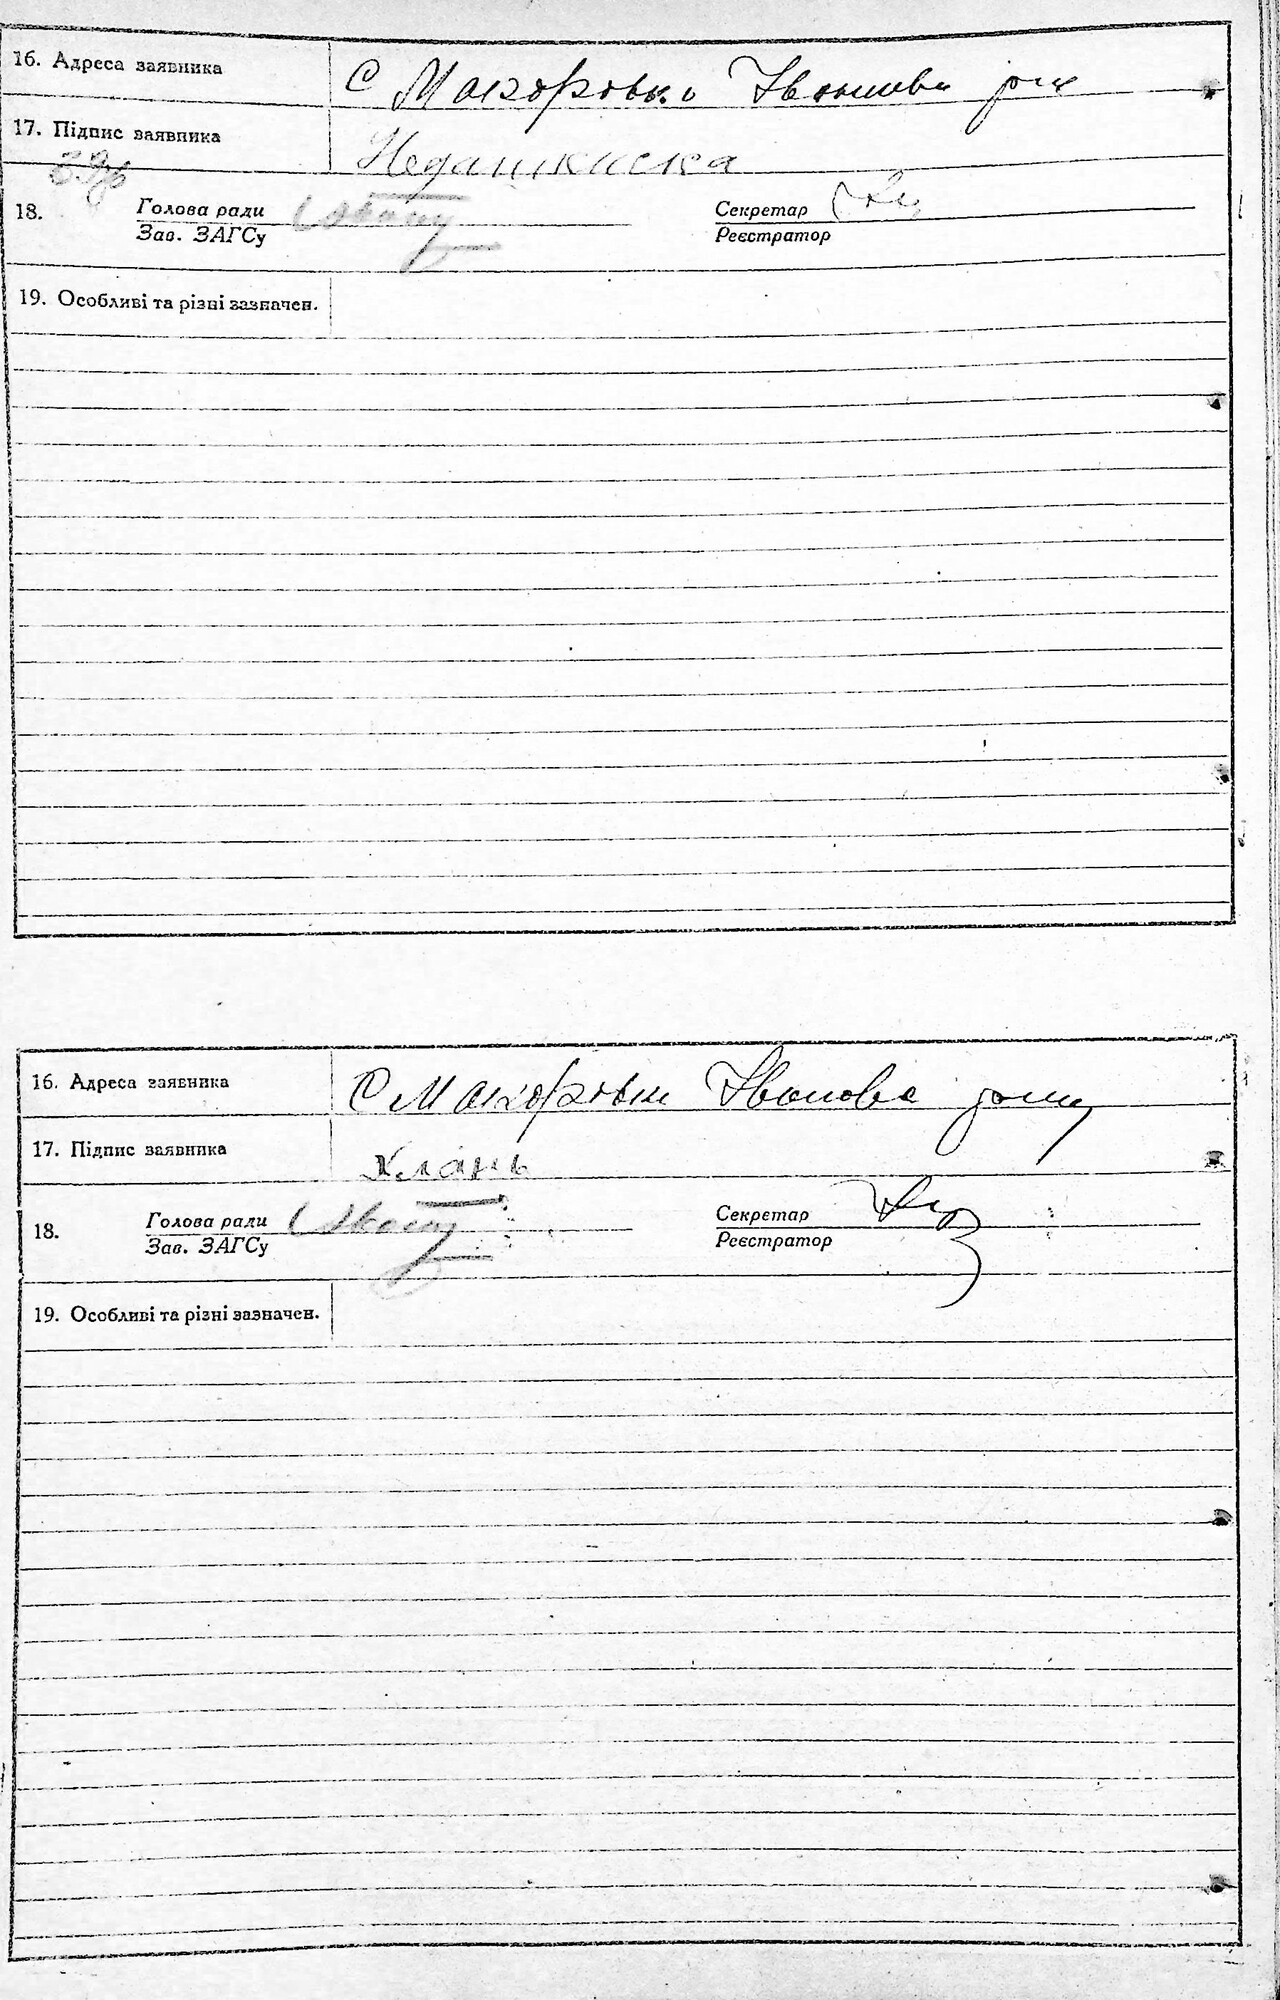 16. Адреса заявника С Макоровка Іванкове
17. Підпис заявника Недашкиска
18. Голова ради Секретар
Зав. ЗАГСу Реєстратор
19. Особливі та різні зазначен.
16. Адреса заявника С Макоровки Іванкове
17. Підпис заявника Хлань
18. Голова ради Секретар
Зав. ЗАГСу Реєстратор
19. Особливі та різні зазначен.